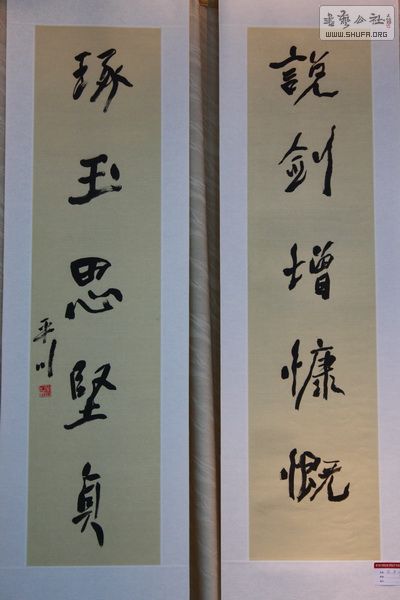 說劍增慷慨
琢玉思堅貞
平川
書藝公社
WWW.SHUFA.ORG